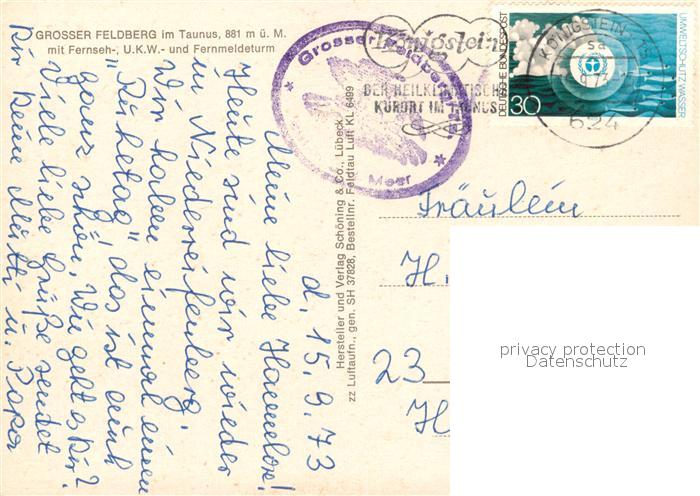 GROSSER FELDBERG im Taunus, 881 m ü. M.
mit Fernseh-, U.K.W.- und Fernmeldeturm
d. 15. 9. 73
Meine liebe Hannelore!
Heute sind wir wieder
in Niederreifenberg.
Wir haben einmal einen
"Ruhetag", das ist auch
ganz schön. Wie geht es Dir?
Viele liebe Grüße sendet
Dir Deine Mutti u. Papa
Hersteller und Verlag Schöning & Co., Lübeck
zz Luftaufn., gen. SH 37828, Bestellnr. Feldtau Luft KL 6499
Grosser Feldberg
Meer
Königstein
DER HEILKLIMATISCHE
KURORT IM TAUNUS
KÖNIGSTEIN
624
DEUTSCHE BUNDESPOST
30
UMWELTSCHUTZ: WASSER
Fräulein
H
23
H
privacy protection
Datenschutz